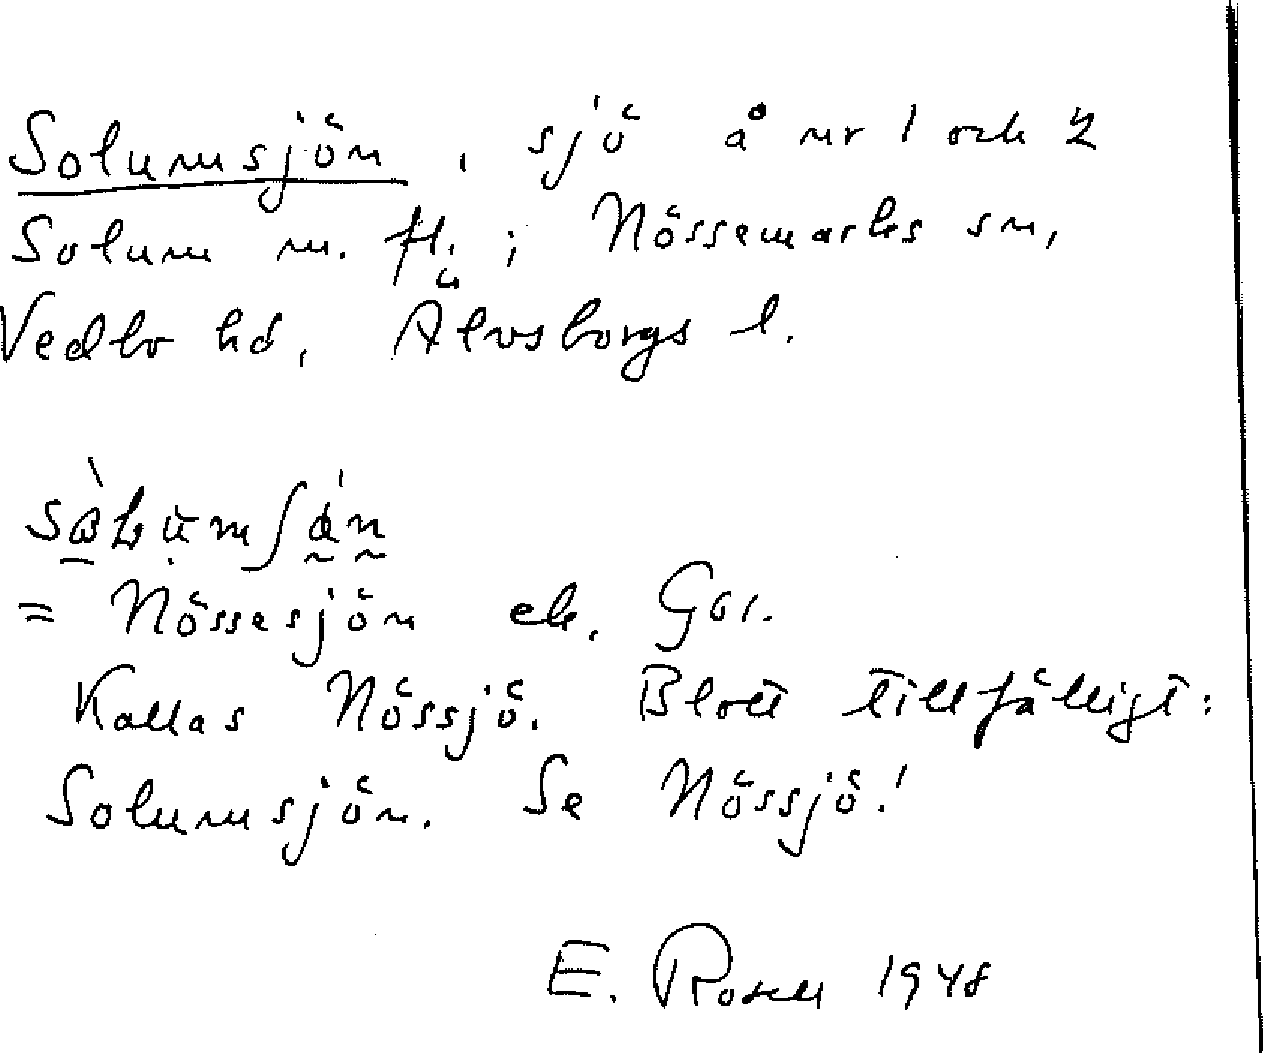 Solumsjön, sjö å nr 1 och 2
Solum m. fl.; Nössemarks sn,
Vedbo hd, Älvsborgs l.
= Nössesjön ek. Gö1.
Kallas Nössjö. Blott tillfälligt:
Solumsjön. Se Nössjö!
E. Rosell 1948